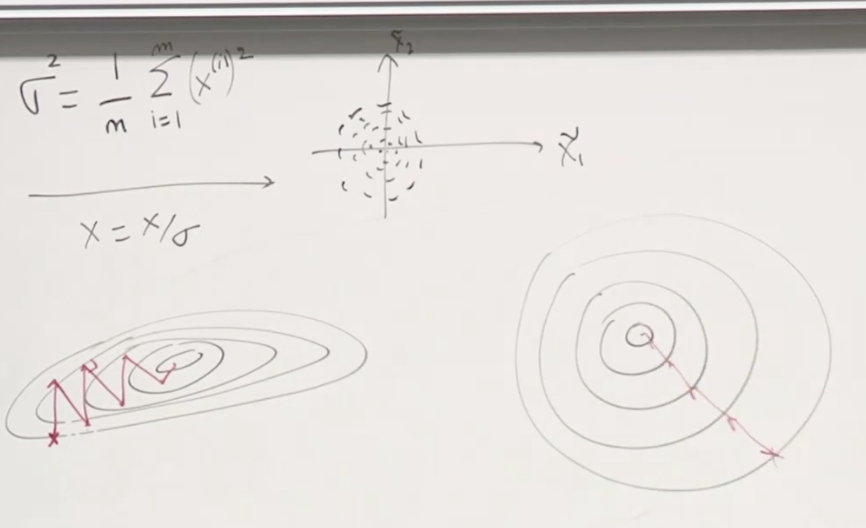 σ² = 1/m Σ_{i=1}^{m} (x^{(i)})²
x̃₂
x̃₁
x = x/σ